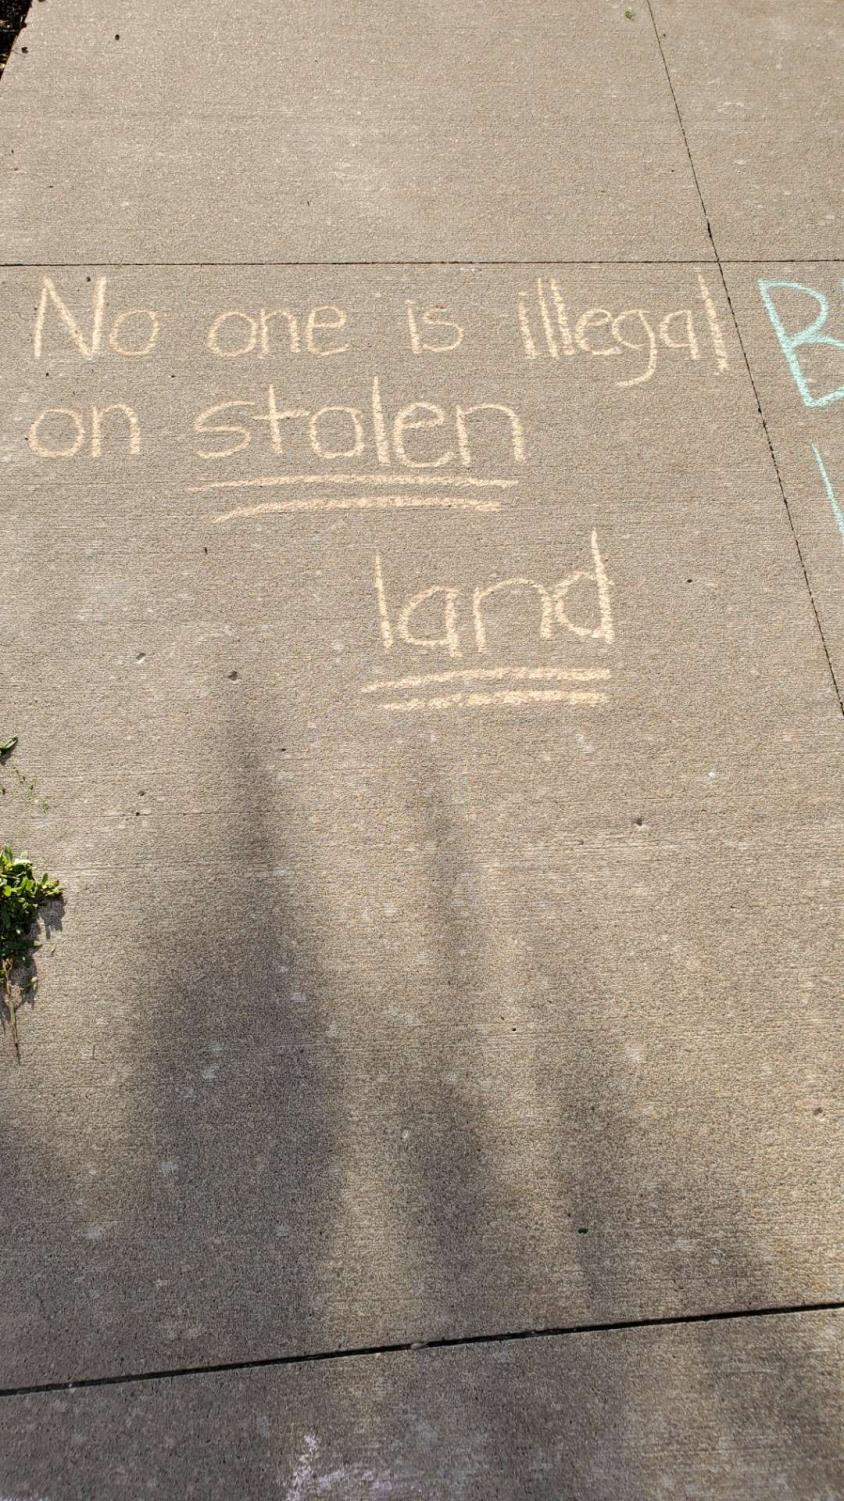 No one is illegal
on stolen
land
B